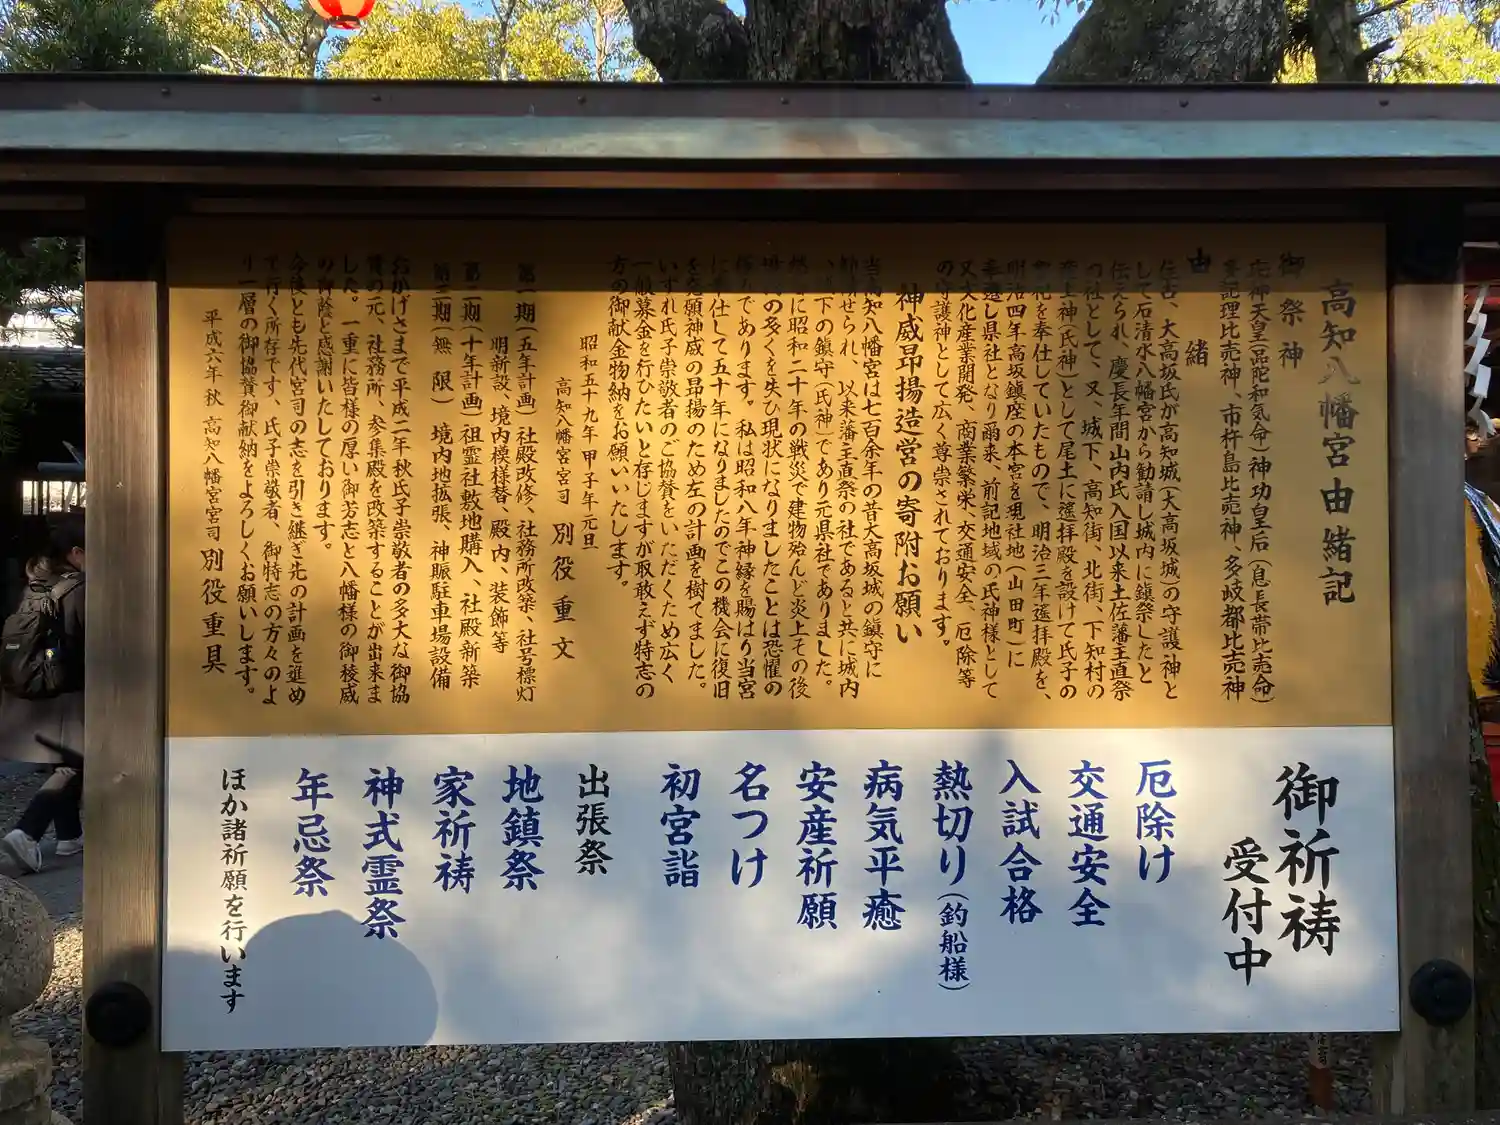 高知八幡宮由緒記
御祭神
応神天皇(品陀和気命)神功皇后(息長帯比売命)
多記理比売神、市杵島比売神、多岐都比売神
由緒
往古、大高坂氏が高知城(大高坂城)の守護神と
して石清水八幡宮から勧請し城内に鎮祭したと
伝えられ、慶長年間山内氏入国以来土佐藩主直祭
の社として、又、城下、高知街、北街、下知村の
産土神(氏神)として尾土に遙拝殿を設けて氏子の
祭礼を奉仕していたもので、明治三年遙拝殿を、
明治四年高坂鎮座の本宮を現社地(山田町)に
奉遷し県社となり爾来、前記地域の氏神様として
又文化産業開発、商業繁栄、交通安全、厄除等
の守護神として広く尊崇されております。
神威昻揚造営の寄附お願い
当高知八幡宮は七百余年の昔大高坂城の鎮守に
せられ、以来藩主直祭の社であると共に城内
下の鎮守(氏神)であり元県社でありました。
然に昭和二十年の戦災で建物殆んど炎上その後
の多くを失ひ現状になりましたことは恐懼の
であります。私は昭和八年神縁を賜はり当宮
に奉仕して五十年になりましたのでこの機会に復旧
を念願神威の昻揚のため左の計画を樹てました。
いずれ氏子崇敬者のご協賛をいただくため広く
一般募金を行ひたいと存じますが取敢えず特志の
方の御献金物納をお願いいたします。
昭和五十九年甲子年元旦
高知八幡宮宮司 別役重文
第一期(五年計画)社殿改修、社務所改築、社号標灯
明新設、境内模様替、殿内、装飾等
第二期(十年計画)祖霊社敷地購入、社殿新築
第三期(無限)境内地拡張、神賑駐車場設備
おかげさまで平成二年秋氏子崇敬者の多大な御協
賛の元、社務所、参集殿を改築することが出来ま
した。一重に皆様の厚い御芳志と八幡様の御稜威
の御蔭と感謝いたしております。
今後とも先代宮司の志を引き継ぎ先の計画を進め
て行く所存です、氏子崇敬者、御特志の方々のよ
り一層の御協賛御献納をよろしくお願いします。
平成六年秋 高知八幡宮宮司 別役重具
御祈祷
受付中
厄除け
交通安全
入試合格
熱切り(釣船様)
病気平癒
安産祈願
名つけ
初宮詣
出張祭
地鎮祭
家祈祷
神式霊祭
年忌祭
ほか諸祈願を行います